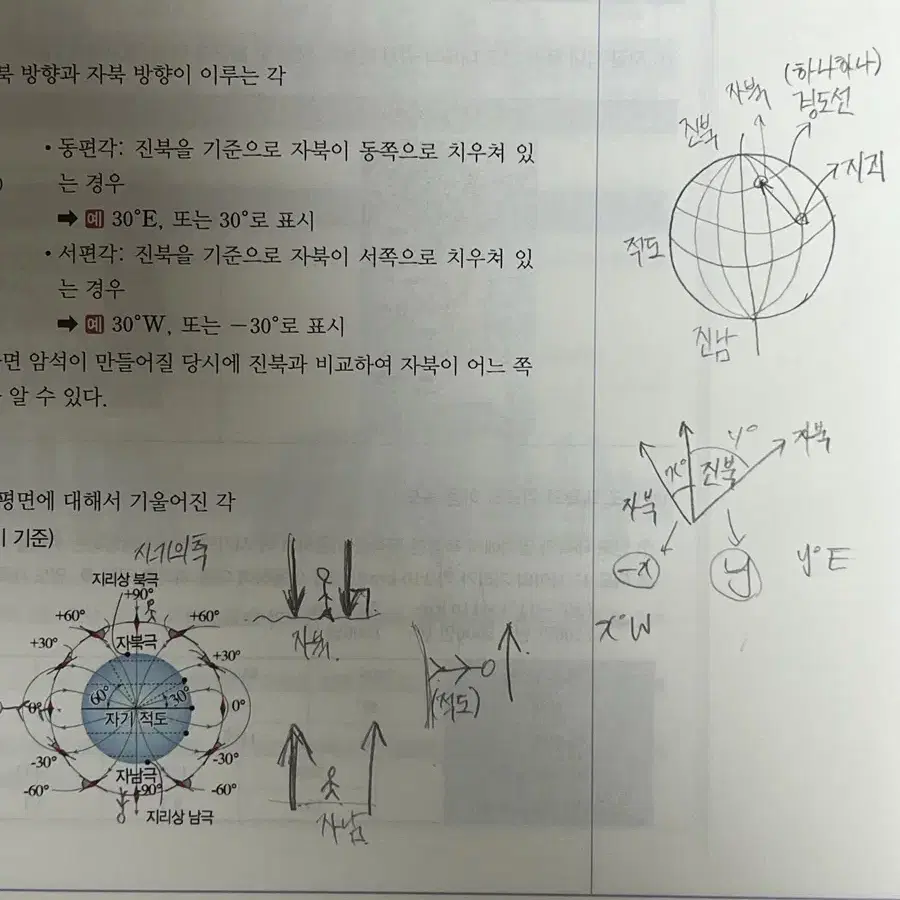 북 방향과 자북 방향이 이루는 각
• 동편각: 진북을 기준으로 자북이 동쪽으로 치우쳐 있
는 경우
➡ 예 30°E, 또는 30°로 표시
• 서편각: 진북을 기준으로 자북이 서쪽으로 치우쳐 있
는 경우
➡ 예 30°W, 또는 −30°로 표시
면 암석이 만들어질 당시에 진북과 비교하여 자북이 어느 쪽
알 수 있다.
평면에 대해서 기울어진 각
기 기준)
지리상 북극
+90°
+60°
+60°
자북극
+30°
+30°
60°
30°
0°
자기 적도
0°
-30°
-30°
자남극
-60°
-90°
-60°
지리상 남극
자북
(적도)
자남
(하나하나)
자북
경도선
진북
적도
진남
y°
자북
x°
진북
자북
-x
y
y°E
x°W